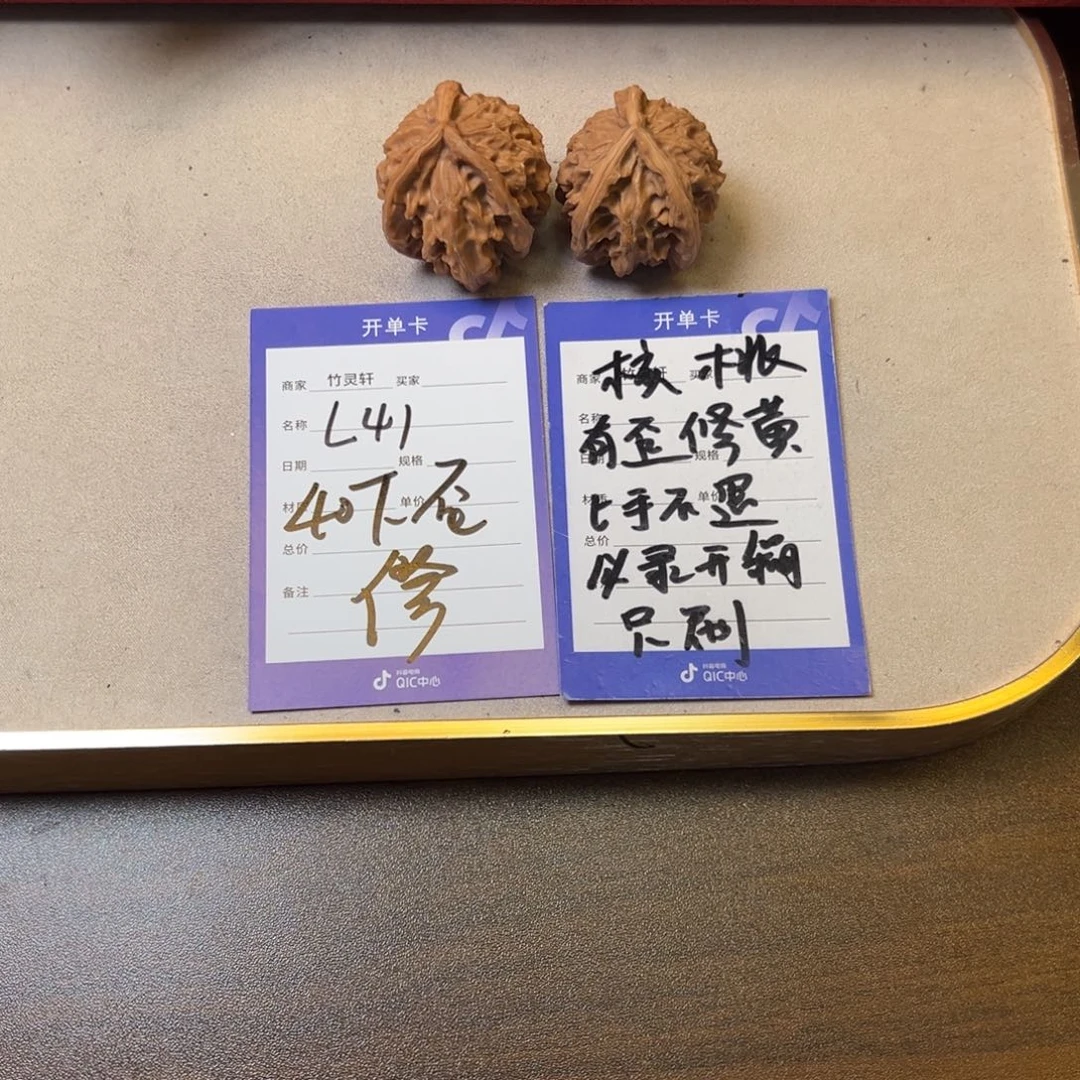 开单卡
商家 竹灵轩 买家
名称 L41
日期 规格
材 40下歪 单价
总价
备注 修
抖音电商
QIC中心
开单卡
商家 轩 买家
核桃
名称
有歪修黄
日期 规格
上手不退
材质 单价
总价
以录开锯
只刷
抖音电商
QIC中心